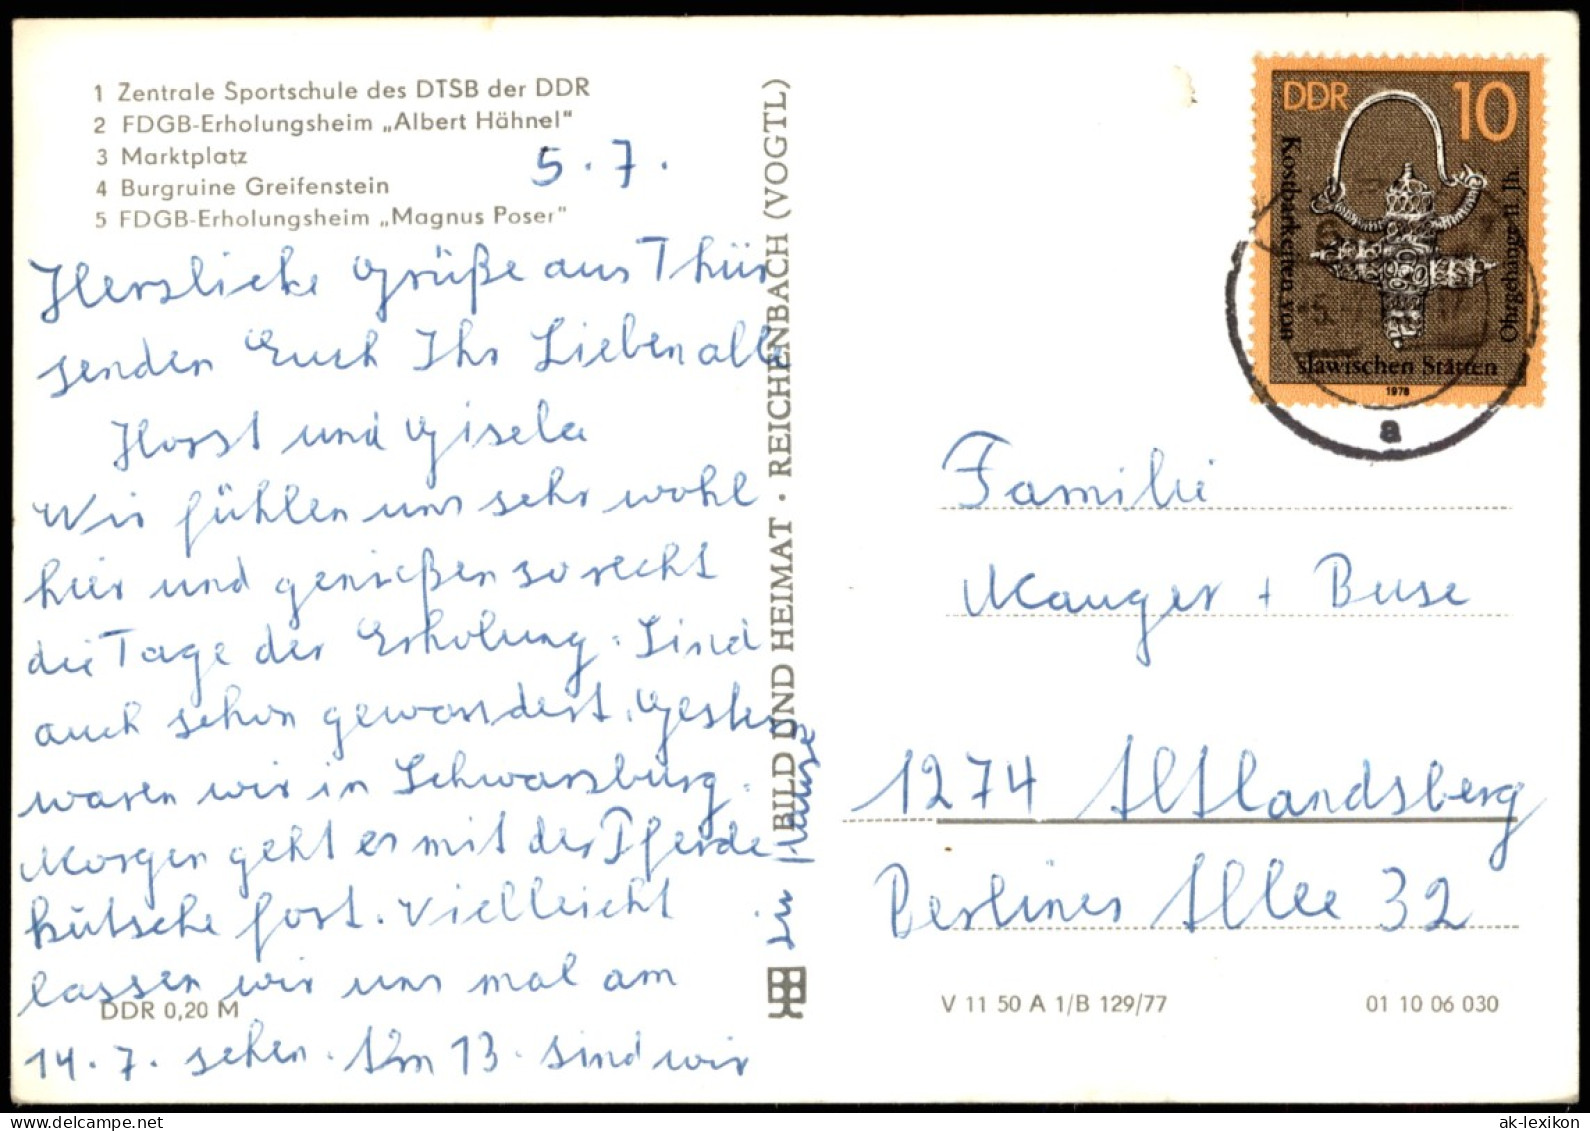 1 Zentrale Sportschule des DTSB der DDR
2 FDGB-Erholungsheim „Albert Hähnel"
3 Marktplatz
4 Burgruine Greifenstein
5 FDGB-Erholungsheim „Magnus Poser"
5.7.
Herzliche Grüße aus Thür
senden Euch Ihr Lieben alle
Horst und Gisela
Wir fühlen uns sehr wohl
hier und genießen so recht
die Tage der Erholung. Sind
auch schon gewandert. Gestern
waren wir in Schwarzburg.
Morgen geht es mit der Pferde
kutsche fort. Vielleicht
lassen wir uns mal am
14.7. sehen. Am 13. sind wir
zu Hause
DDR 0,20 M
BILD UND HEIMAT · REICHENBACH (VOGTL)
DDR 10
Kostbarkeiten von
slawischen Stätten
Ohrgehänge 11. Jh.
1978
a
Familie
Manger + Buse
1274 Altlandsberg
Berliner Allee 32
V 11 50 A 1/B 129/77
01 10 06 030
ak-lexikon